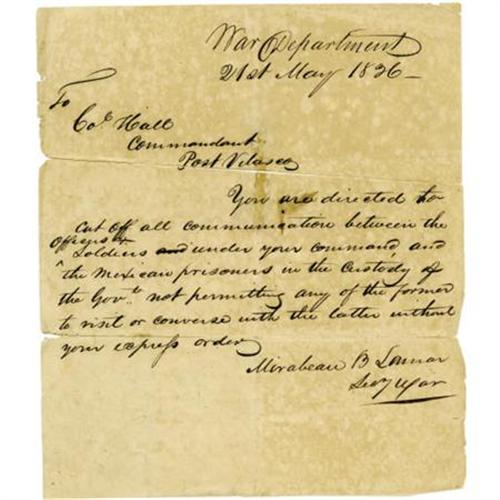 War Department
21st May 1836
To
Col Hall
Commandant
Post Velasco
You are directed to
cut off all communication between the
officers &
soldiers and under your command, and
the Mexican prisoners in the custody of
the Govt. not permitting any of the former
to visit or converse with the latter without
your express order
Mirabeau B Lamar
Secy War